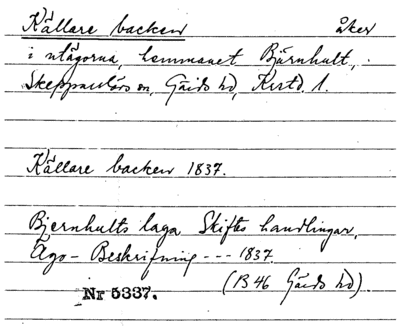 Källare backen åker
i utägorna, hemmanet Bjärnhult,
Skeppslövs sn, Gärds hd, Krstd. l.
Källare backen 1837.
Bjernhults laga Skiftes handlingar,
Ägo-Beskrifning --- 1837.
(B 46 Gärds hd).
Nr 5337.